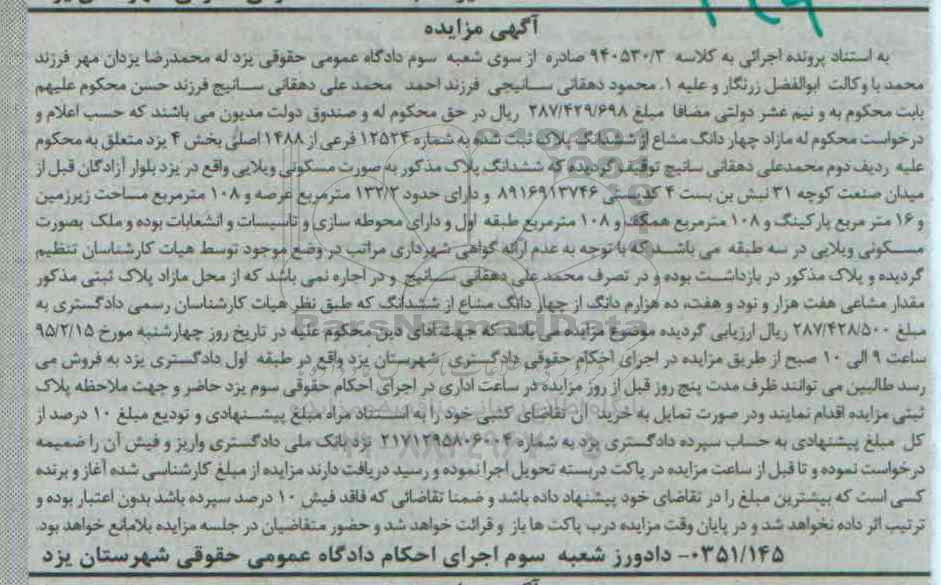 آگهی مزایده
به استناد پرونده اجرائی به کلاسه ۹۴۰۵۳۰/۳ صادره از سوی شعبه سوم دادگاه عمومی حقوقی یزد له محمدرضا یزدان مهر فرزند
محمد با وکالت ابوالفضل زرنگار و علیه ۱. محمود دهقانی سانیجی فرزند احمد محمد علی دهقانی سانیج فرزند حسن محکوم علیهم
بابت محکوم به و نیم عشر دولتی مضافا مبلغ ۲۸۷/۴۲۹/۶۹۸ ریال در حق محکوم له و صندوق دولت مدیون می باشند که حسب اعلام و
درخواست محکوم له مازاد چهار دانگ مشاع از ششدانگ پلاک ثبت شده به شماره ۱۲۵۲۴ فرعی از ۱۴۸۸ اصلی بخش ۴ یزد متعلق به محکوم
علیه ردیف دوم محمدعلی دهقانی سانیج توقیف گردیده که ششدانگ پلاک مذکور به صورت مسکونی ویلایی واقع در یزد بلوار آزادگان قبل از
میدان صنعت کوچه ۳۱ نبش بن بست ۴ کدپستی ۸۹۱۶۹۱۳۷۴۶ و دارای حدود ۱۳۲/۲ مترمربع عرصه و ۱۰۸ مترمربع مساحت زیرزمین
و ۱۶ متر مربع پارکینگ و ۱۰۸ مترمربع همکف و ۱۰۸ مترمربع طبقه اول و دارای محوطه سازی و تاسیسات و انشعابات بوده و ملک بصورت
مسکونی ویلایی در سه طبقه می باشد که با توجه به عدم ارائه گواهی شهرداری مراتب در وضع موجود توسط هیات کارشناسان تنظیم
گردیده و پلاک مذکور در بازداشت بوده و در تصرف محمد علی دهقانی سانیج و در اجاره نمی باشد که از محل مازاد پلاک ثبتی مذکور
مقدار مشاعی هفت هزار و نود و هفت، ده هزارم دانگ از چهار دانگ مشاع از ششدانگ که طبق نظر هیات کارشناسان رسمی دادگستری به
مبلغ ۲۸۷/۴۲۸/۵۰۰ ریال ارزیابی گردیده موضوع مزایده می باشد که جهت ادای دین محکوم علیه در تاریخ روز چهارشنبه مورخ ۹۵/۲/۱۵
ساعت ۹ الی ۱۰ صبح از طریق مزایده در اجرای احکام حقوقی دادگستری شهرستان یزد واقع در طبقه اول دادگستری یزد به فروش می
رسد طالبین می توانند ظرف مدت پنج روز قبل از روز مزایده در ساعت اداری در اجرای احکام حقوقی سوم یزد حاضر و جهت ملاحظه پلاک
ثبتی مزایده اقدام نمایند ودر صورت تمایل به خرید آن تقاضای کتبی خود را به انستناد مراد مبلغ پیشنهادی و تودیع مبلغ ۱۰ درصد از
کل مبلغ پیشنهادی به حساب سپرده دادگستری یزد به شماره ۲۱۷۱۲۹۵۸۰۶۰۰۴ نزد بانک ملی دادگستری واریز و فیش آن را ضمیمه
درخواست نموده و تا قبل از ساعت مزایده در پاکت دربسته تحویل اجرا نموده و رسید دریافت دارند مزایده از مبلغ کارشناسی شده آغاز و برنده
کسی است که بیشترین مبلغ را در تقاضای خود پیشنهاد داده باشد و ضمنا تقاضائی که فاقد فیش ۱۰ درصد سپرده باشد بدون اعتبار بوده و
ترتیب اثر داده نخواهد شد و در پایان وقت مزایده درب پاکت ها باز و قرائت خواهد شد و حضور متقاضیان در جلسه مزایده بلامانع خواهد بود.
۰۳۵۱/۱۴۵- دادورز شعبه سوم اجرای احکام دادگاه عمومی حقوقی شهرستان یزد